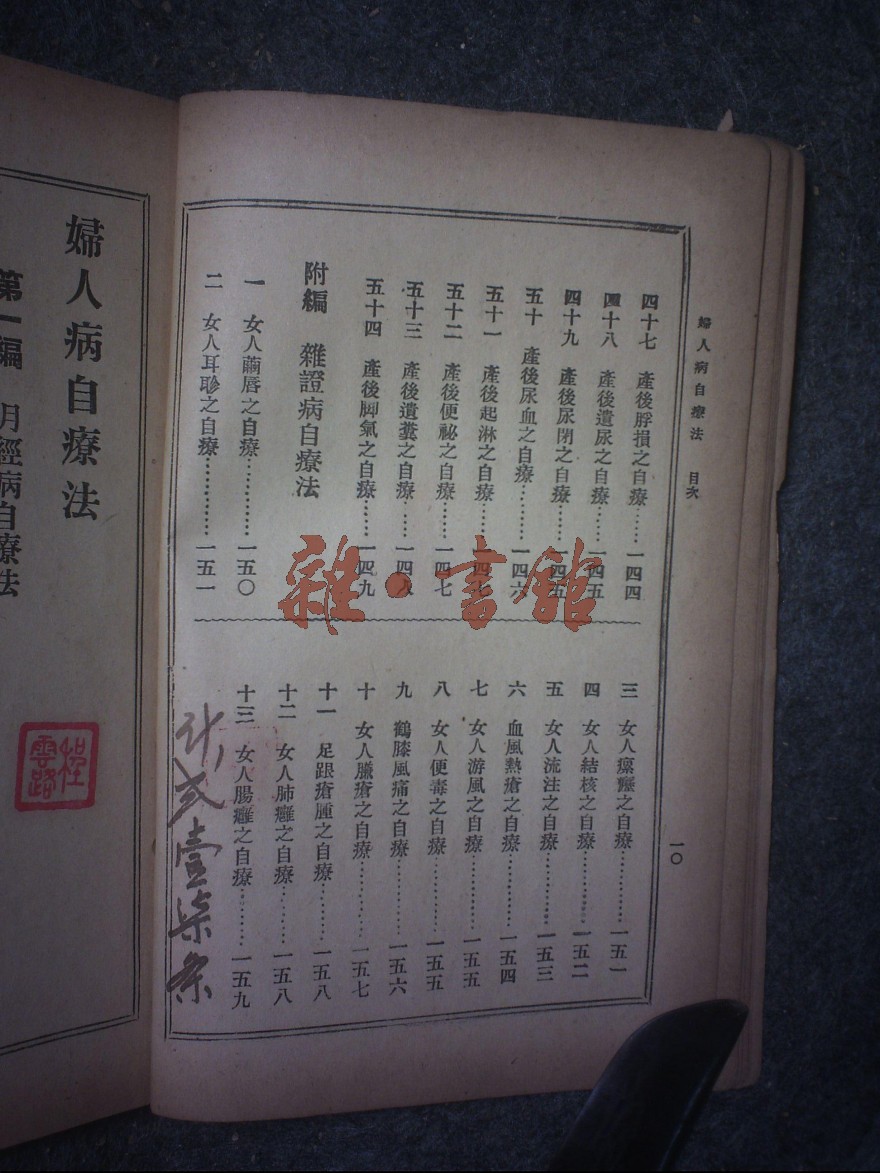 婦人病自療法 目次
一〇
四十七 產後脬損之自療……一四四
四十八 產後遺尿之自療……一四五
四十九 產後尿閉之自療……一四五
五十 產後尿血之自療……一四六
五十一 產後起淋之自療……一四七
五十二 產後便祕之自療……一四七
五十三 產後遺糞之自療……一四八
五十四 產後脚氣之自療……一四九
附編 雜證病自療法
一 女人繭唇之自療…………一五〇
二 女人耳聄之自療…………一五一
三 女人瘰癧之自療…………一五一
四 女人結核之自療…………一五二
五 女人流注之自療…………一五三
六 血風熱瘡之自療…………一五四
七 女人游風之自療…………一五五
八 女人便毒之自療…………一五五
九 鶴膝風痛之自療…………一五六
十 女人臁瘡之自療…………一五七
十一 足跟瘡腫之自療………一五八
十二 女人肺癰之自療………一五八
十三 女人腸癰之自療………一五九
壹柒
婦人病自療法
第一編 月經病自療法
雜·書館